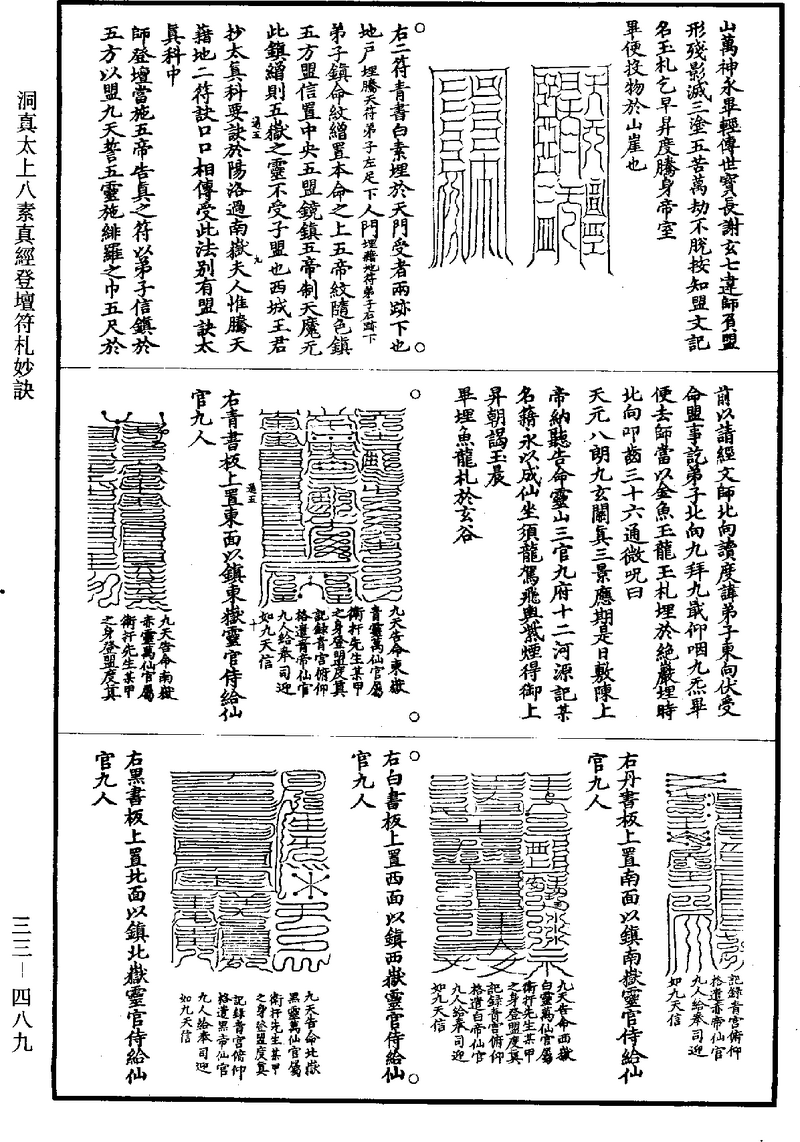 山萬神永畢輕傳世寶長謝玄七違師負盟
形殘影滅三塗五苦萬劫不脫按知盟文記
名玉札乞早昇度騰身帝室
畢便投物於山崖也
右二符青書白素埋於天門受者兩跡下也
地戶埋騰天符弟子左足下人門埋藉地符弟子右跡下
弟子鎮命紋繒置本命之上五帝紋隨色鎮
五方盟信置中央五盟鏡鎮五帝制天魔无
此鎮繒則五嶽之靈不受子盟也西城王君
抄太真科要訣於陽洛過南嶽夫人惟騰天
藉地二符訣口口相傳受此法別有盟訣太
真科中
師登壇當施五帝告真之符以弟子信鎮於
五方以盟九天誓五靈施緋羅之巾五尺於
過五
九
前以請經文師北向讀度諱弟子東向伏受
命盟事訖弟子北向九拜九戢仰咽九炁畢
便去師當以金魚玉龍玉札埋於絕巖埋時
北向叩齒三十六通微呪曰
天元八朗九玄關真三景應期是日敷陳上
帝納聽告命靈山三官九府十二河源記某
名籍永以成仙坐須龍駕飛輿紫煙得御上
昇朝謁玉晨
畢埋魚龍札於玄谷
九天告命東嶽
青靈萬仙官屬
衛扞先生某甲
之身登盟度真
記錄青宮俯仰
格遣青帝仙官
九人給奉司迎
如九天信
右青書板上置東面以鎮東嶽靈官侍給仙
官九人
過五
九天告命南嶽
赤靈萬仙官屬
衛扞先生某甲
之身登盟度真
記錄青宮俯仰
格遣赤帝仙官
九人給奉司迎
如九天信
右丹書板上置南面以鎮南嶽靈官侍給仙
官九人
九天告命西嶽
白靈萬仙官屬
衛扞先生某甲
之身登盟度真
記錄青宮俯仰
格遣白帝仙官
九人給奉司迎
如九天信
右白書板上置西面以鎮西嶽靈官侍給仙
官九人
九天告命北嶽
黑靈萬仙官屬
衛扞先生某甲
之身登盟度真
記錄青宮俯仰
格遣黑帝仙官
九人給奉司迎
如九天信
右黑書板上置北面以鎮北嶽靈官侍給仙
官九人
洞真太上八素真經登壇符札妙訣
三三—四八九